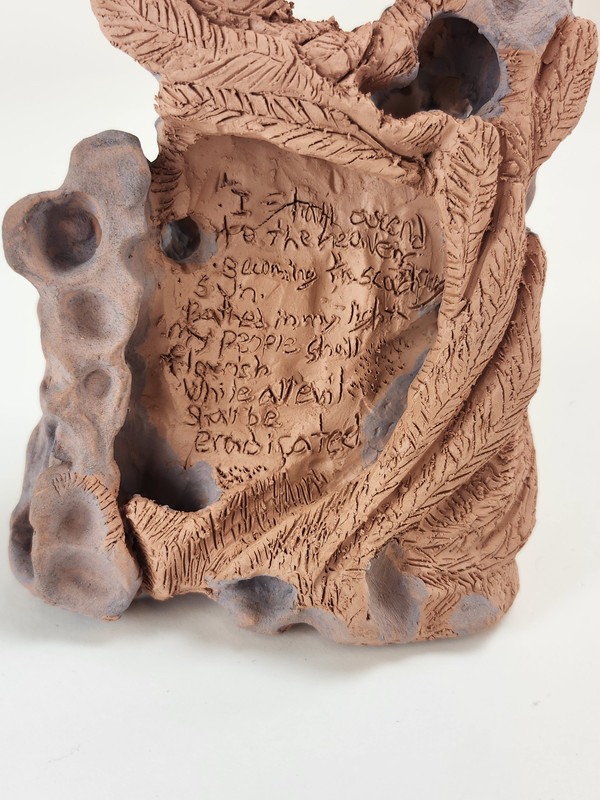 "I shall ascend
to the heavens
. Becoming the scorching
sun.
Bathed in my light
my people shall
flourish
while all evil
shall be
eradicated